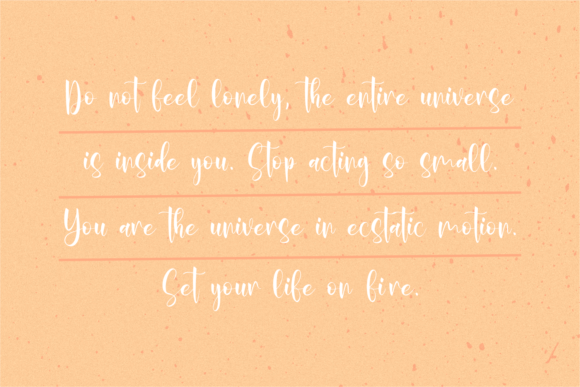 Do not feel lonely, the entire universe
is inside you. Stop acting so small.
You are the universe in ecstatic motion.
Set your life on fire.